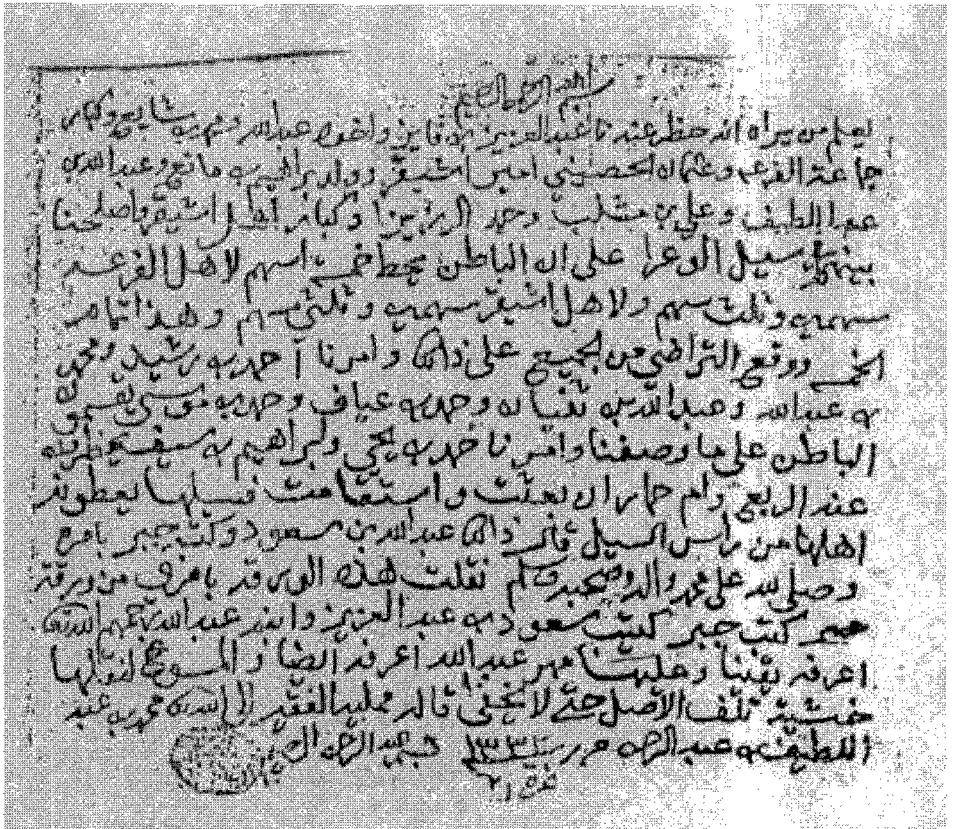 بسم الله الرحمن الرحيم
يعلم من يراه انه حظر عندنا عبدالعزيز بن فايز واخوه عبدالله وكبار
جماعة الفرعه وعثمان الحصيني امير اشيقر وولد ابراهيم بن مانع وعبدالله بن
عبداللطيف وعلي بن وحمد الرزيزا وكبار اهل اشيقر واصلحنا
بينهم سيل الوعرا على ان الباطن يحط خمسة اسهم لاهل الفرعه
سهمين وثلث سهم ولاهل اشيقر سهمين وثلثي سهم وهذا تمام
الخمسه ووقع التراضي من الجميع على ذالك وامرنا احمد بن رشيد ومحمد
بن عبدالله وعبدالله بن ثنيان وحمد بن عياف وحمد بن موسى يقسمون
الباطن على ما وصفنا وامرنا حمد بن يحي وابراهيم بن سيف يحظرونه
عند الربعي وام حمار ان بعثت واستقامت فسيلها يعطونه
اهلها من راس السيل قال ذالك عبدالله بن سعود وكتبه جبر بامره
وصلى لله على محمد واله وصحبه وسلم نقلت هذه الورقه من ورقة
كتب جبر كتيب سعود بن عبدالعزيز وابنه عبدالله رحمهم الله
اعرفه يقينا وعليها مهر عبدالله اعرفه ايضا والمسوغ لنقلها
خشية تلف الاصل حتى لا يخفى قاله ممليه الفقير الى الله محمد بن عبد
اللطيف بن عبدالرحمن حرر